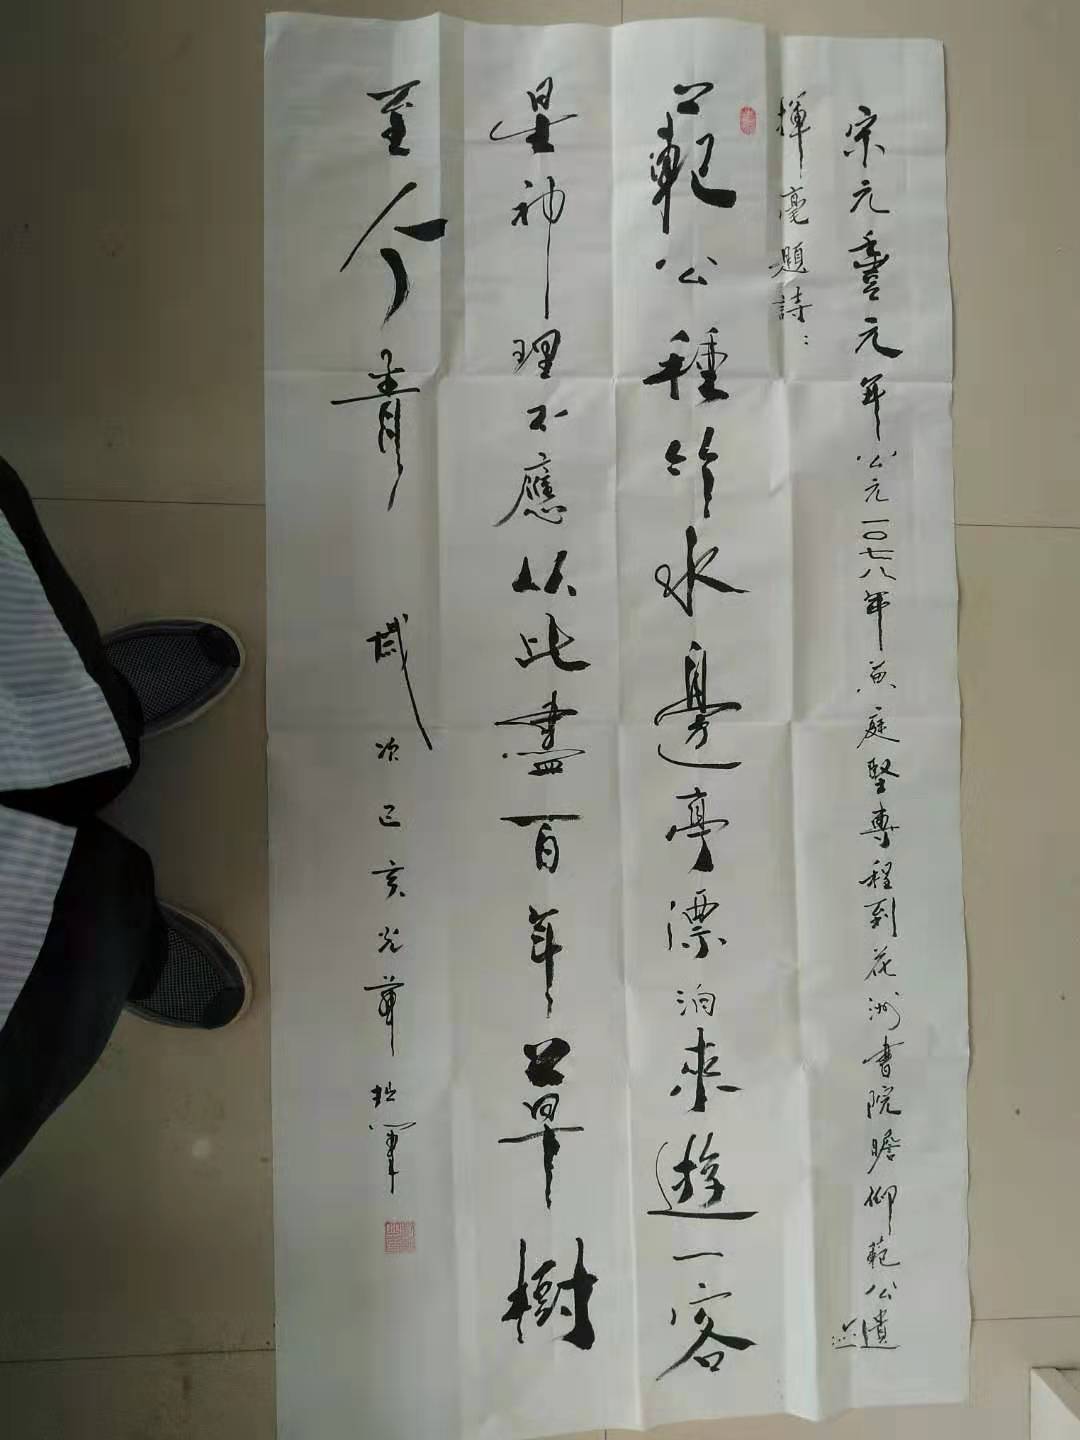 宋元豐元年公元一〇七八年黄庭堅專程到花洲書院瞻仰範公遺
揮毫題詩：
範公種竹水邊亭漂泊來遊一客
星神理不應从此盡百年草樹
至今青 歲次己亥光華拙筆